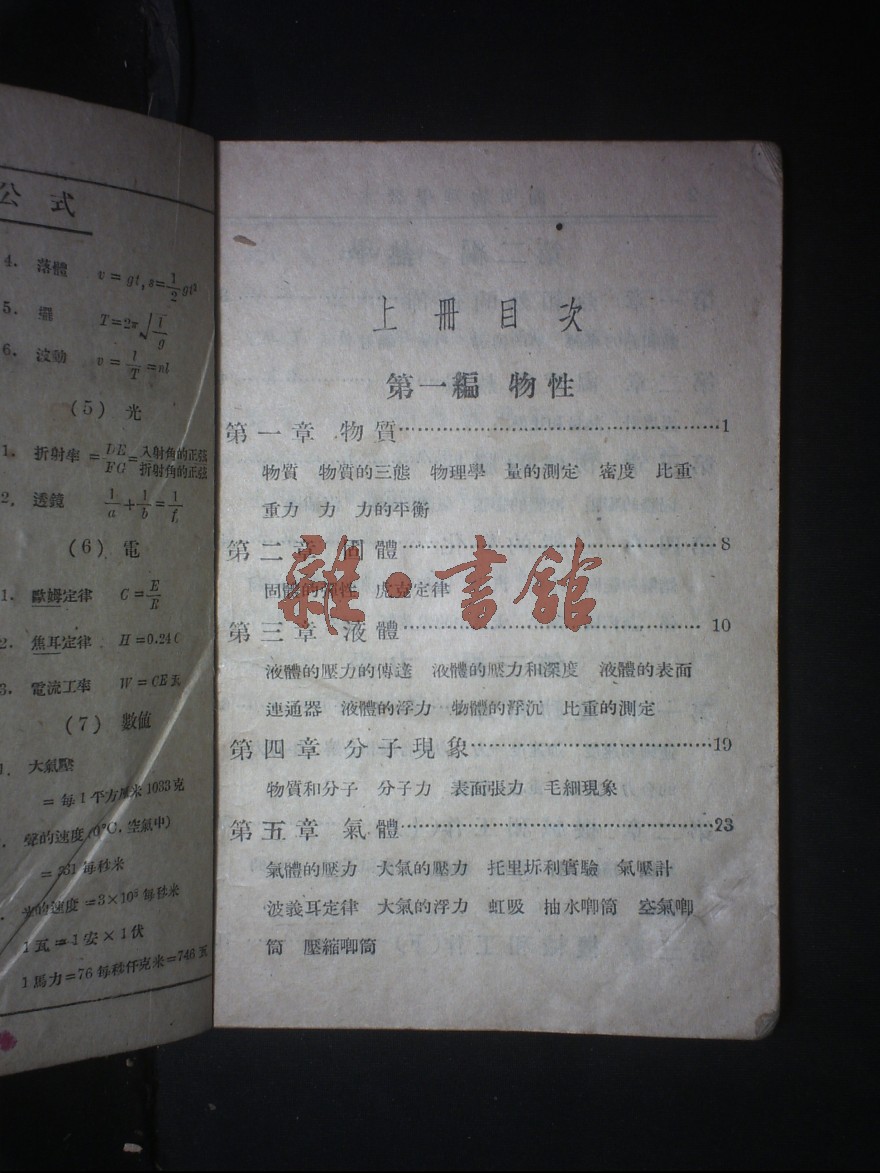 公式
4. 落體 v = gt, s = 1/2 gt²
5. 擺 T=2π√(l/g)
6. 波動 v = l/T = nl
(5) 光
1. 折射率 = DE/FG = 入射角的正弦/折射角的正弦
2. 透鏡 1/a + 1/b = 1/f
(6) 電
1. 歐姆定律 C = E/R
2. 焦耳定律 H = 0.24 C
3. 電流工率 W = CE
(7) 數値
1. 大氣壓
= 每1平方厘米1033克
聲的速度 (0°C, 空氣中)
= 331 每秒米
光的速度 = 3×10⁸ 每秒米
1瓦 = 1安 × 1伏
1馬力 = 76 每秒仟克米 = 746 瓦
上冊目次
第一編 物性
第一章 物質……1
物質 物質的三態 物理學 量的測定 密度 比重
重力 力 力的平衡
第二章 固體……8
固體的彈性 虎克定律
第三章 液體……10
液體的壓力的傳達 液體的壓力和深度 液體的表面
連通器 液體的浮力 物體的浮沉 比重的測定
第四章 分子現象……19
物質和分子 分子力 表面張力 毛細現象
第五章 氣體……23
氣體的壓力 大氣的壓力 托里坼利實驗 氣壓計
波義耳定律 大氣的浮力 虹吸 抽水喞筒 空氣喞
筒 壓縮喞筒
雜·書館